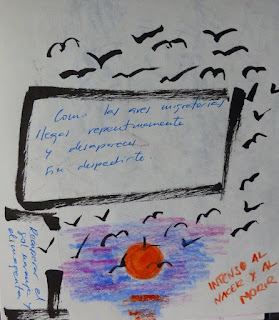 Como las aves migratorias
llegas repentinamente
y desapareces
sin despedirte.
el
sol naranja y
INTENSO AL
NACER Y AL
MORIR